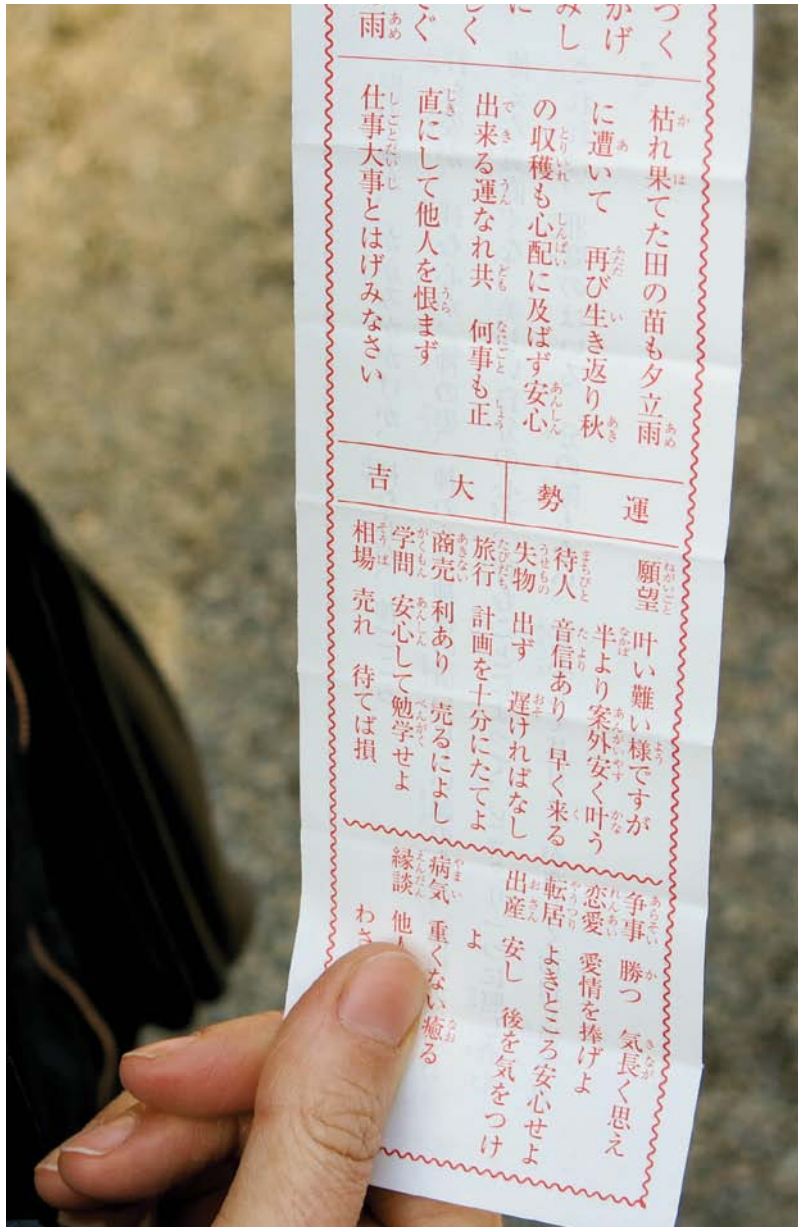 づく
かげ
みし
に
しく
ぐ
雨
枯れ果てた田の苗も夕立雨
に遭いて 再び生き返り秋
の収穫も心配に及ばず安心
出来る運なれ共 何事も正
直にして他人を恨まず
仕事大事とはげみなさい
運勢 大吉
願望 叶い難い様ですが
半より案外安く叶う
待人 音信あり 早く来る
失物 出ず 遅ければなし
旅行 計画を十分にたてよ
商売 利あり 売るによし
学問 安心して勉学せよ
相場 売れ 待てば損
争事 勝つ 気長く思え
恋愛 愛情を捧げよ
転居 よきところ安心せよ
出産 安し 後を気をつけ
よ
病気 重くない癒る
縁談 他人
わさ